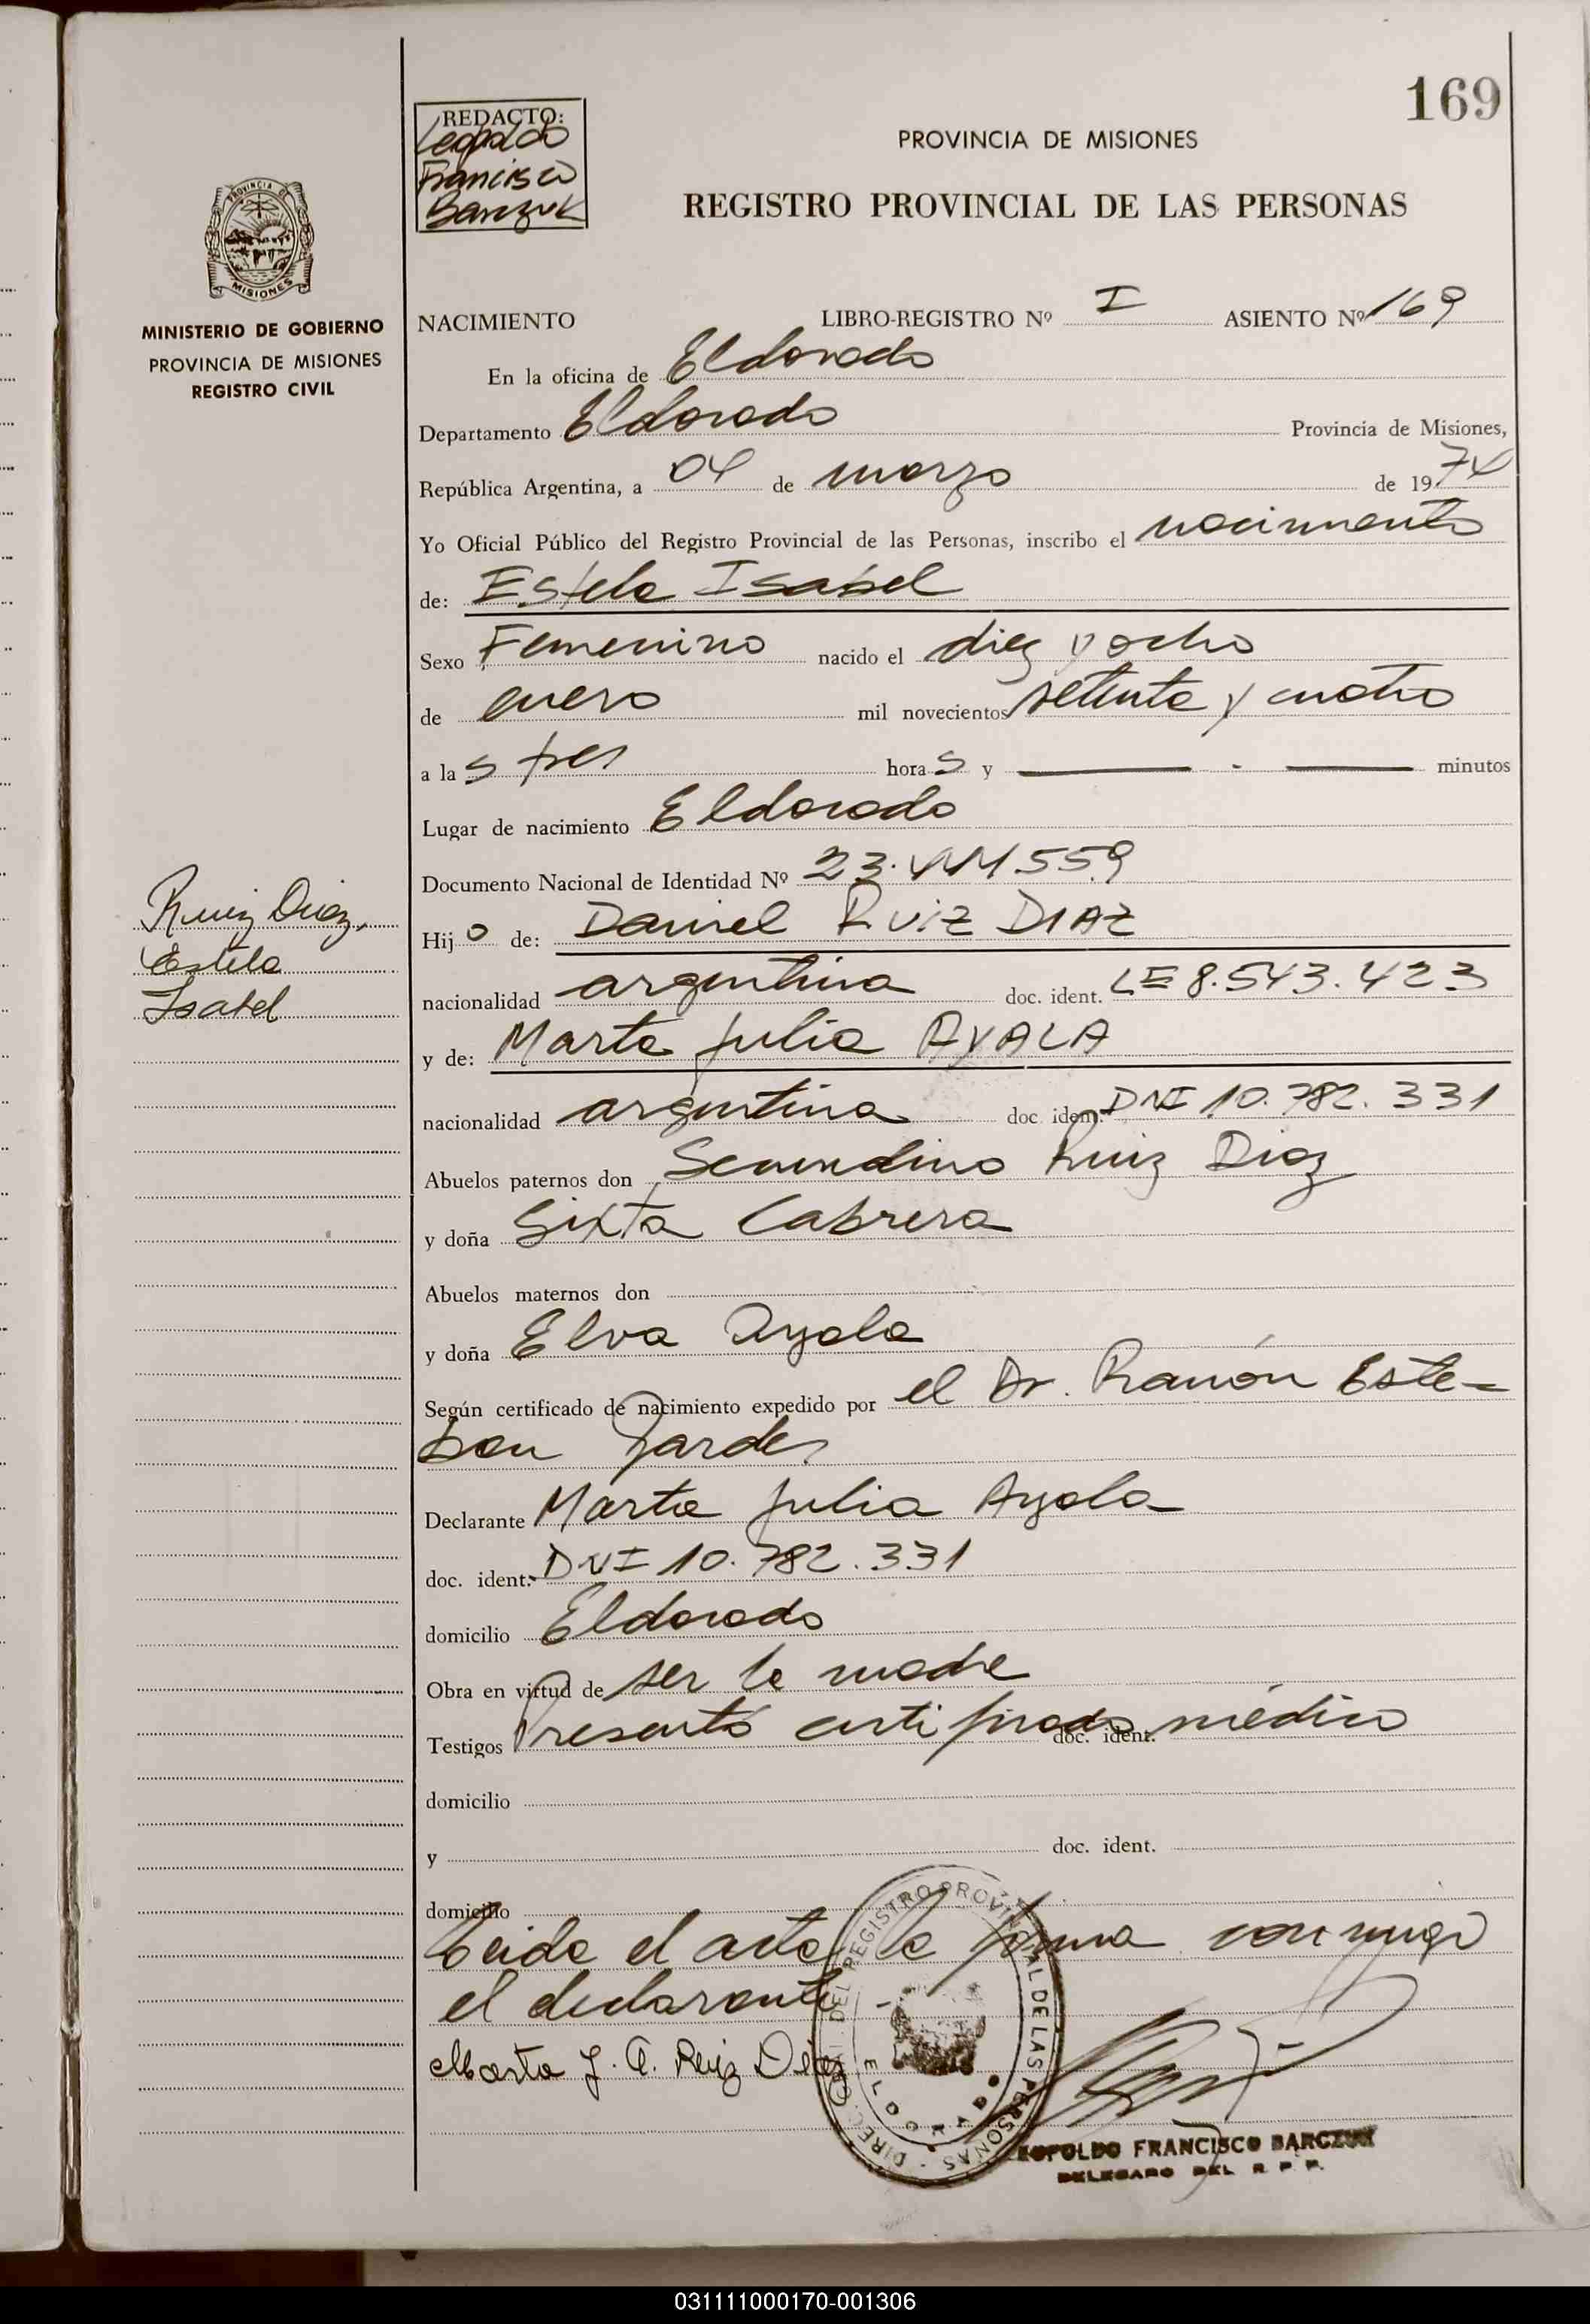 169
REDACTO:
Leopoldo
Francisco
Barczuk
PROVINCIA DE MISIONES
REGISTRO PROVINCIAL DE LAS PERSONAS
PROVINCIA DE
MISIONES
MINISTERIO DE GOBIERNO
PROVINCIA DE MISIONES
REGISTRO CIVIL
NACIMIENTO LIBRO-REGISTRO Nº I ASIENTO Nº 169
En la oficina de Eldorado
Departamento Eldorado Provincia de Misiones,
República Argentina, a 04 de marzo de 1974
Yo Oficial Público del Registro Provincial de las Personas, inscribo el nacimiento
de: Estela Isabel
Sexo Femenino nacido el diez y ocho
de enero mil novecientos setenta y cuatro
a las tres horas y — - — minutos
Lugar de nacimiento Eldorado
Documento Nacional de Identidad Nº 23.444.559
Ruiz Diaz,
Estela
Isabel
Hijo de: Daniel RUIZ DIAZ
nacionalidad argentina doc. ident. LE 8.543.423
y de: Marta Julia AYALA
nacionalidad argentina doc. ident. DNI 10.782.331
Abuelos paternos don Secundino Ruiz Diaz
y doña Sixta Cabrera
Abuelos maternos don
y doña Elva Ayala
Según certificado de nacimiento expedido por el Dr. Ramón Este-
ban
Declarante Marta Julia Ayala
doc. ident. DNI 10.782.331
domicilio Eldorado
Obra en virtud de ser la madre
Testigos Presentó certificado doc. ident. médico
domicilio
y doc. ident.
domicilio
Leida el acta la firma conmigo
el declarante
Marta J. A. Ruiz Diaz
DIREC. GRAL. DEL REGISTRO PROVINCIAL DE LAS PERSONAS
ELDORADO
LEOPOLDO FRANCISCO BARCZUK
DELEGADO DEL R. P. P.
031111000170-001306